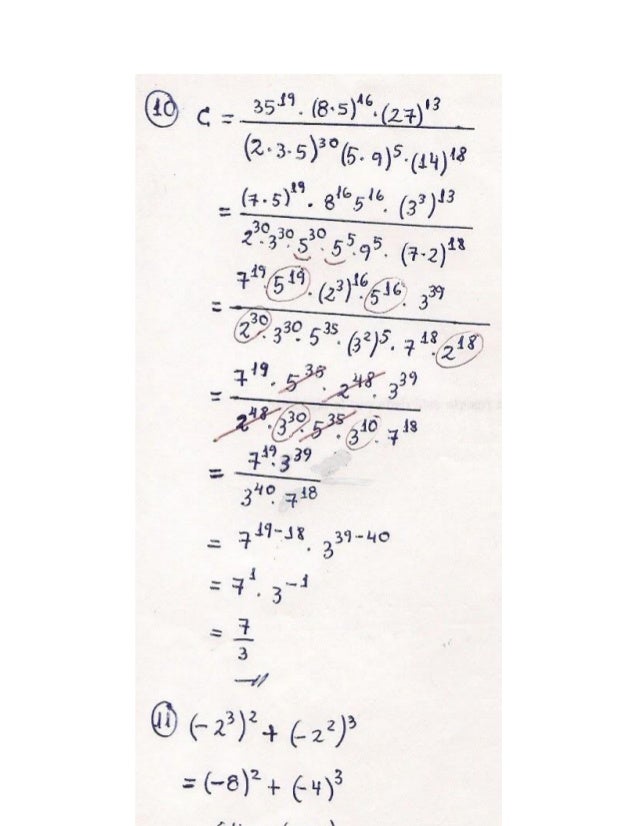 10 C = 35^19 · (8·5)^16 · (27)^13 / (2·3·5)^30 (5·9)^5 · (14)^18
= (7·5)^19 · 8^16 5^16 · (3^3)^13 / 2^30·3^30·5^30·5^5·9^5 · (7·2)^18
= 7^19·5^19·(2^3)^16·5^16 · 3^39 / 2^30·3^30·5^35·(3^2)^5·7^18·2^18
= 7^19 · 5^35 · 2^48 · 3^39 / 2^48·3^30·5^35·3^10·7^18
= 7^19·3^39 / 3^40·7^18
= 7^19-18 · 3^39-40
= 7^1 · 3^-1
= 7/3
11 (-2^3)^2 + (-2^2)^3
= (-8)^2 + (-4)^3